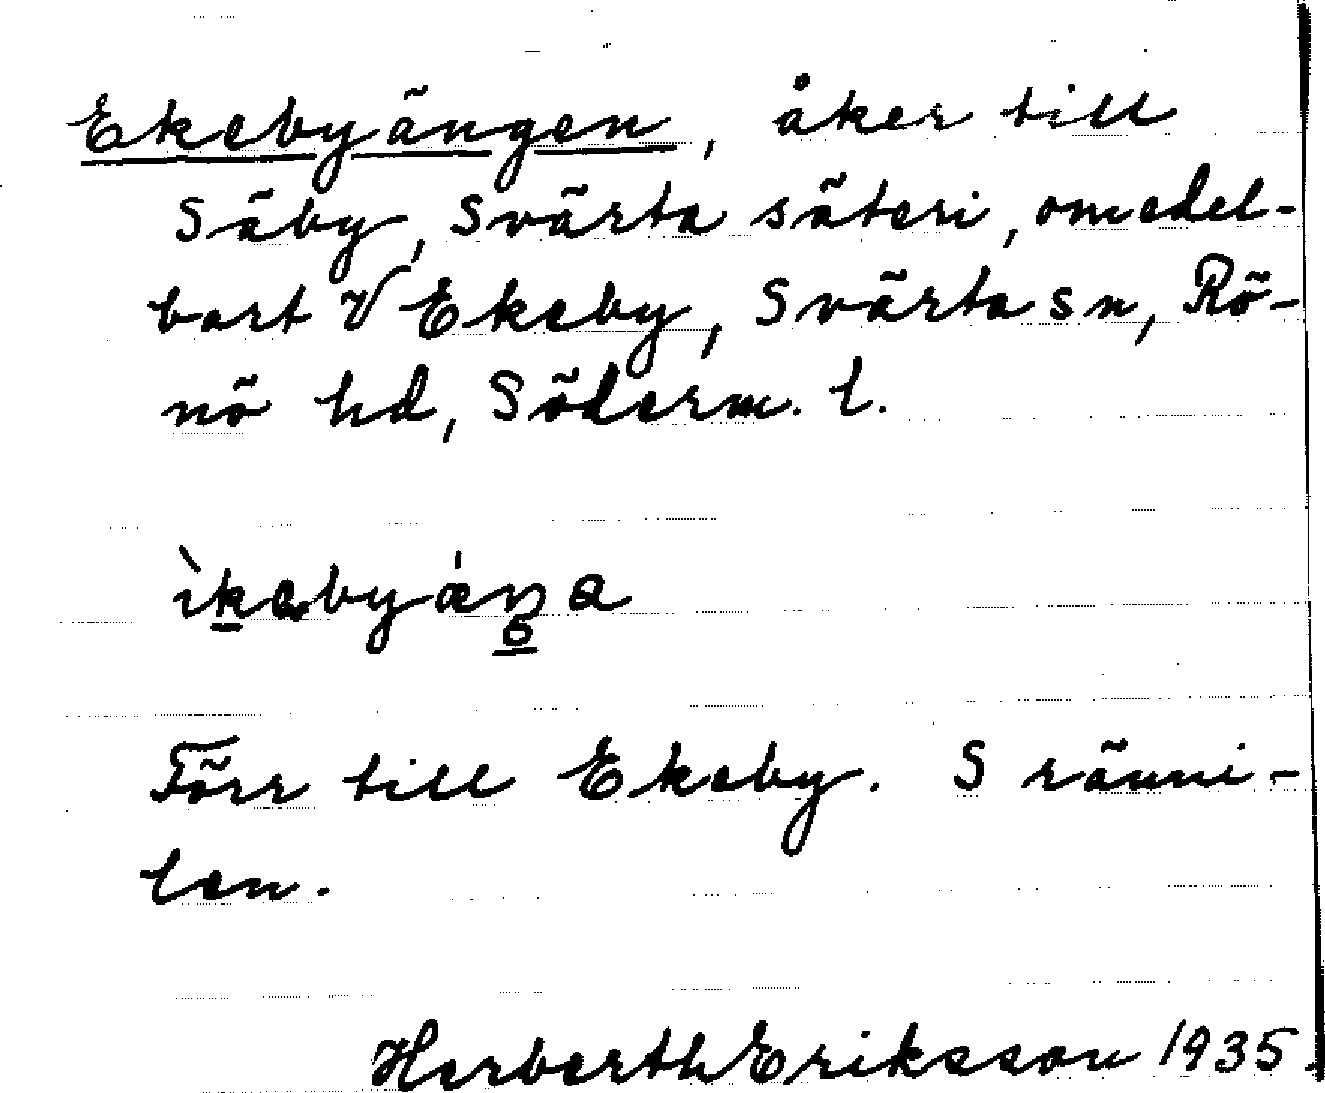 Ekebyängen, åker till
Säby, Svärta säteri, omedel-
bart V Ekeby, Svärta sn, Rö-
nö hd, Söderm. l.
Förr till Ekeby. S
Herberth Eriksson 1935.